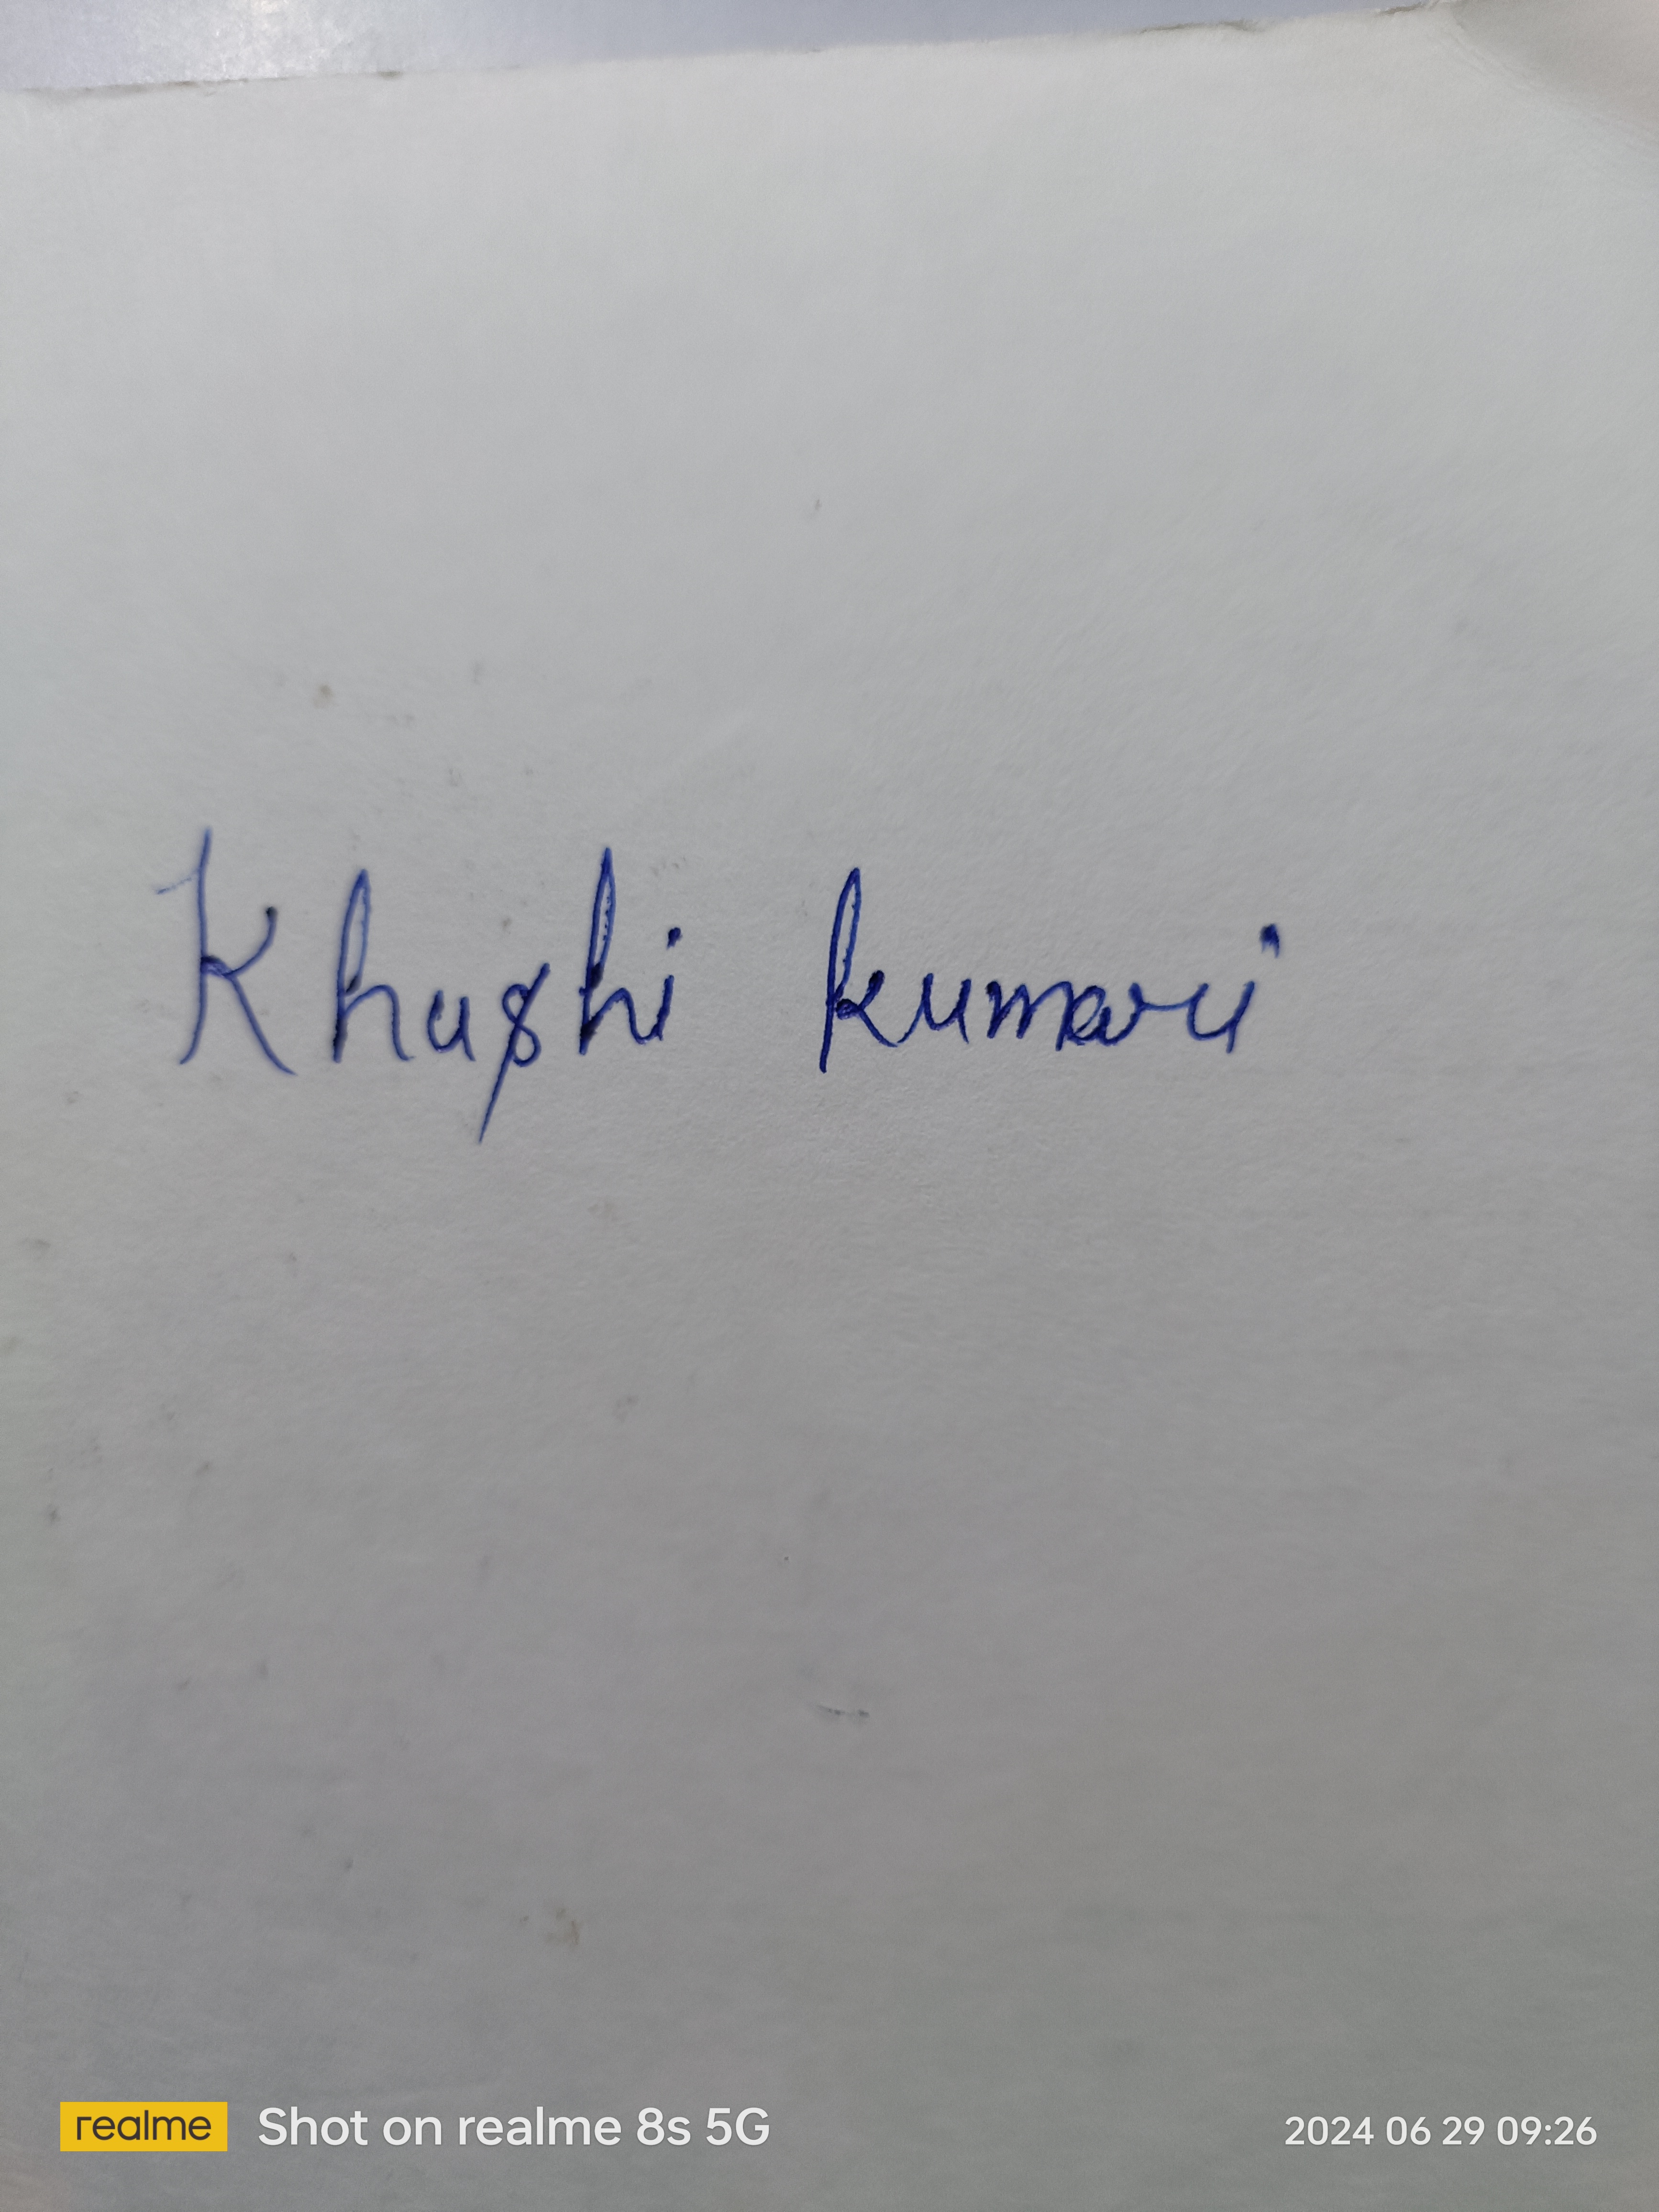 Khushi kumari
realme Shot on realme 8s 5G 2024 06 29 09:26